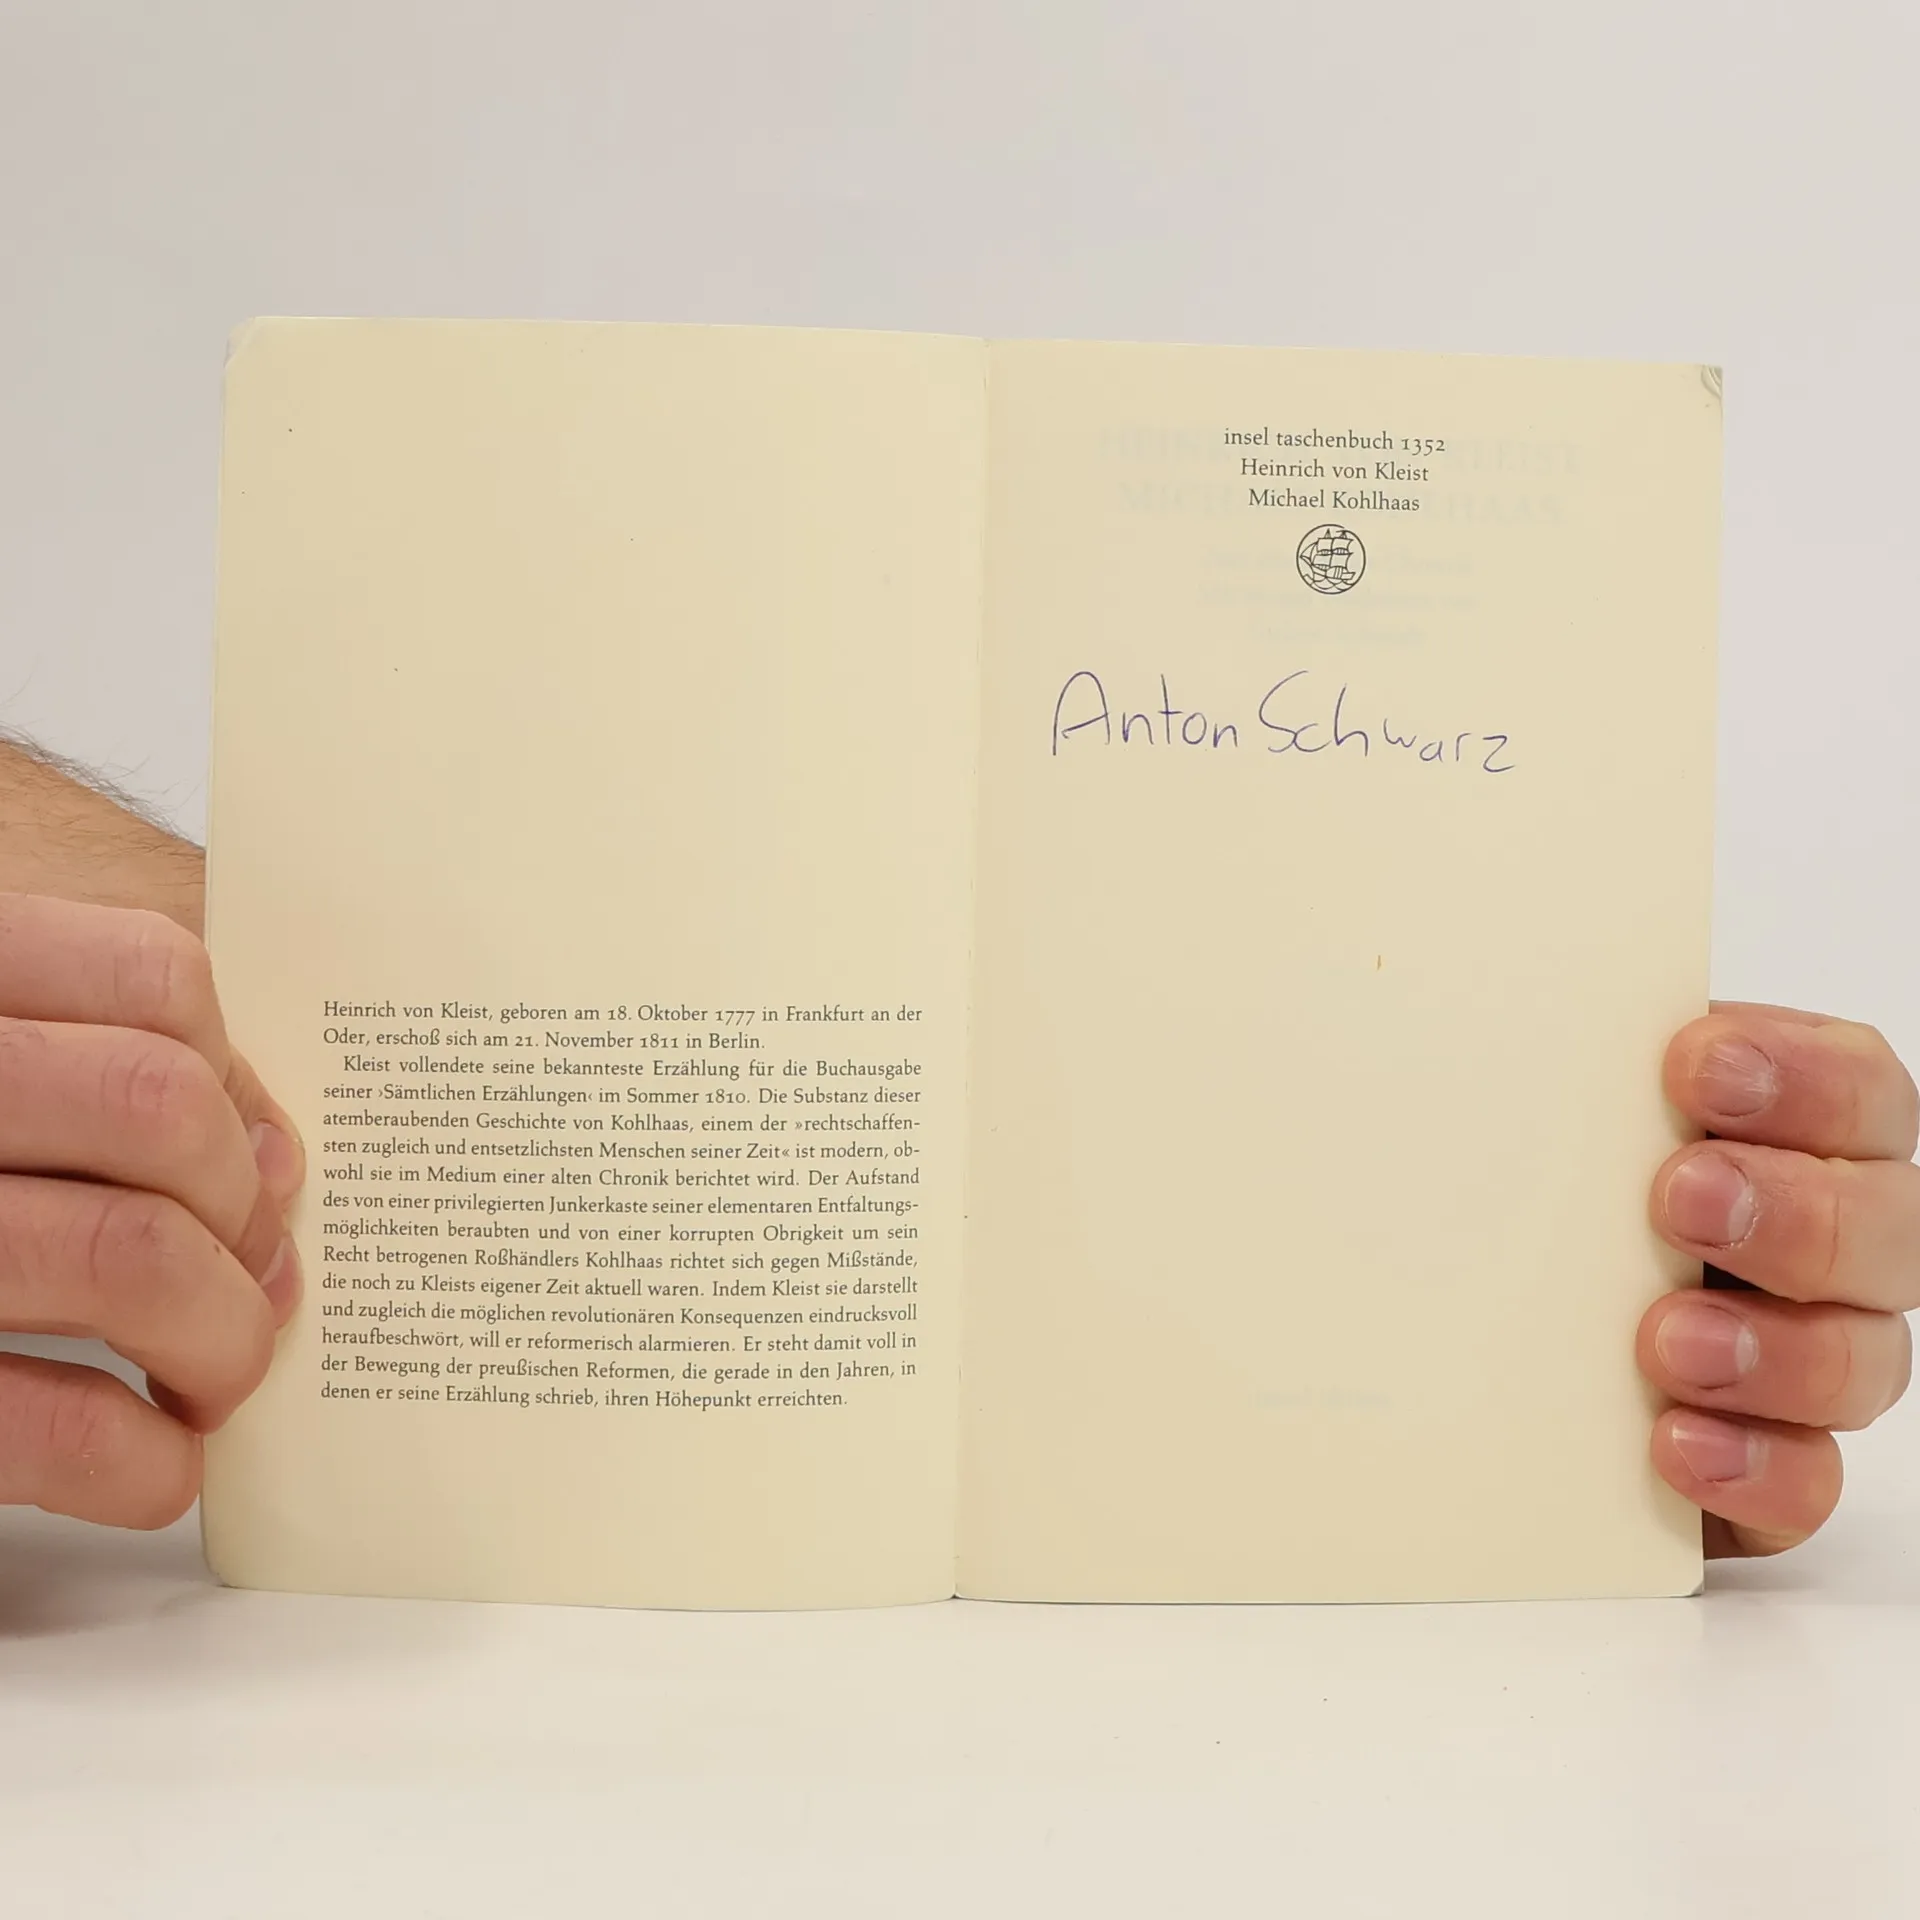 Heinrich von Kleist, geboren am 18. Oktober 1777 in Frankfurt an der
Oder, erschoß sich am 21. November 1811 in Berlin.
Kleist vollendete seine bekannteste Erzählung für die Buchausgabe
seiner ›Sämtlichen Erzählungen‹ im Sommer 1810. Die Substanz dieser
atemberaubenden Geschichte von Kohlhaas, einem der »rechtschaffen-
sten zugleich und entsetzlichsten Menschen seiner Zeit« ist modern, ob-
wohl sie im Medium einer alten Chronik berichtet wird. Der Aufstand
des von einer privilegierten Junkerkaste seiner elementaren Entfaltungs-
möglichkeiten beraubten und von einer korrupten Obrigkeit um sein
Recht betrogenen Roßhändlers Kohlhaas richtet sich gegen Mißstände,
die noch zu Kleists eigener Zeit aktuell waren. Indem Kleist sie darstellt
und zugleich die möglichen revolutionären Konsequenzen eindrucksvoll
heraufbeschwört, will er reformerisch alarmieren. Er steht damit voll in
der Bewegung der preußischen Reformen, die gerade in den Jahren, in
denen er seine Erzählung schrieb, ihren Höhepunkt erreichten.
insel taschenbuch 1352
Heinrich von Kleist
Michael Kohlhaas
Anton Schwarz